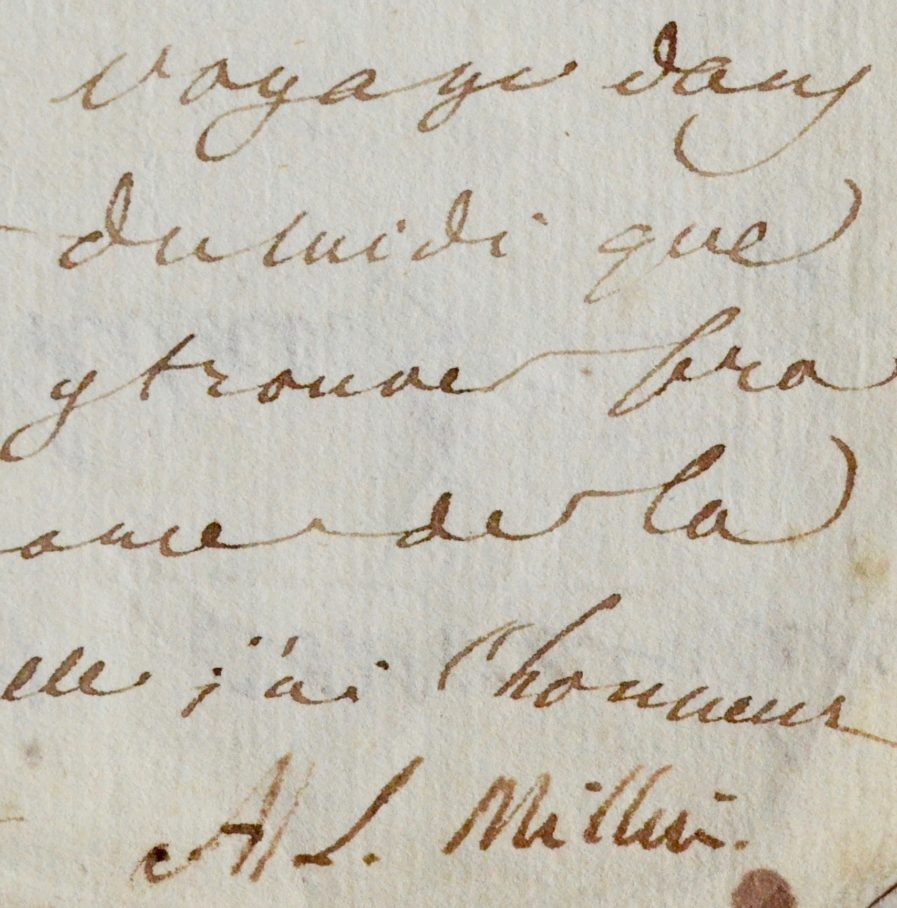 voyage dans
du midi que
y trouver
de la
elle j'ai l'honneur
A L. Millin.